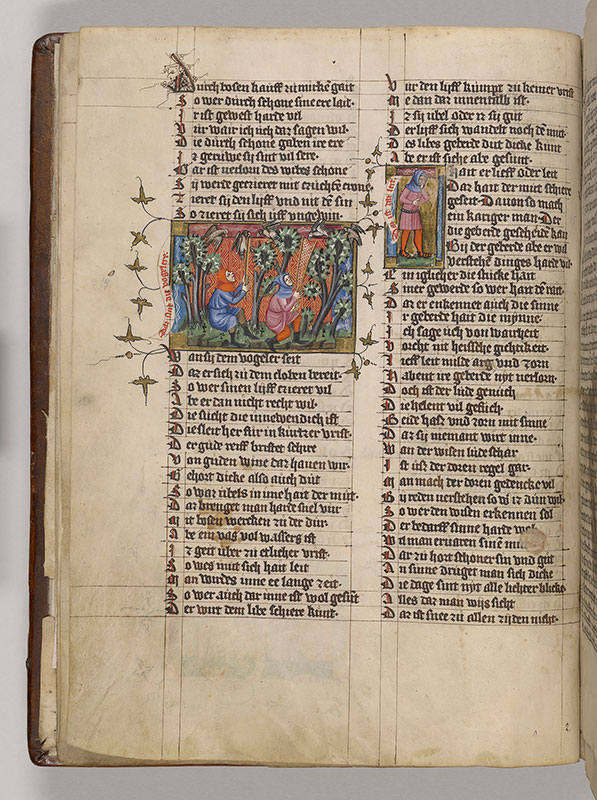 Durch bosen kauff zu mirken gait
So wer durch schone sine ere lait
Ir ist gewest harde vil
Vur wair ich uch daz sagen wil
Die durch schone gaben ire ere
Ir geruwe sij sint vil sere
Dar ist verlorn des wibes schone
Sij werde gezieret mit zuchten crone
Zieret sij den lijff und nit den sin
So zieret sij sich uff ungewin
Daz sint die vogelere
Wan sij dem vogeler seit
Daz er sich zu dem cloben bereit
So wer sinen lijff zieret vil
Abe er dan nicht recht wil
Die sucht die innewendich ist
Die sleit her fur in kurtzer vrist
Der gude reiff brister sehre
Von guden wine daz haven wir
Gehort dicke also auch dut
So waz ubels in ime hait der mut
Daz brenget man harde snel vur
Mit bosen wercken zu der dur
Abe ein vas vol wassers ist
Iz geit uber zu etlicher vrist
So wes mut sich hait leit
Man wirdes inne ee lange zeit
So wer auch daz inne ist wol gesunt
Der wirt dem libe schiere kunt
Vur den lijff kumpt zu keiner vrist
Me dan daz innenthalb ist
Iz sij ubel oder iz sij gut
Der lijff sich wandelt noch dem mut
Des libes geberde dut dicke kunt
Abe er ist siche abe gesunt
Hait er lieff oder leit
Daz hait der mut schiere
geseit Davon so mach
ein kariger man Der
die geberde gescheide kan
Bij der geberde abe er wil
verstehen dinges harde vil
Einglicher die stucke hait
Siner gewerde so wer hait den rait
Daz er erkennet auch die sinne
Ir geberde hait die mynne
Ich sage uch von warheit
Vorcht nit heissche gichtikeit
Lieff leit nilde arg und zorn
Habent ire geberde nyt verlorn
Doch ist der lude genuch
Die helent vil gefuch
Beide hass und zorn mit sinne
Daz sij niemant wirt inne
Wan der wisen lude schar
Ist uss der doren regel gar
Man mach der doren gedencke vil
Bij reden verstehen so wer iz dun wil
So wer den wisen erkennen sol
Der bedarff sinne harde wol
Wil man ervaren sinen mut
Dar zu hort schoner sin und gut
An sinne druget man sich dicke
Die dage sint nyt alle liehter blicke
Alles daz man wijs sicht
Daz ist snee zu allen zijden nicht
2